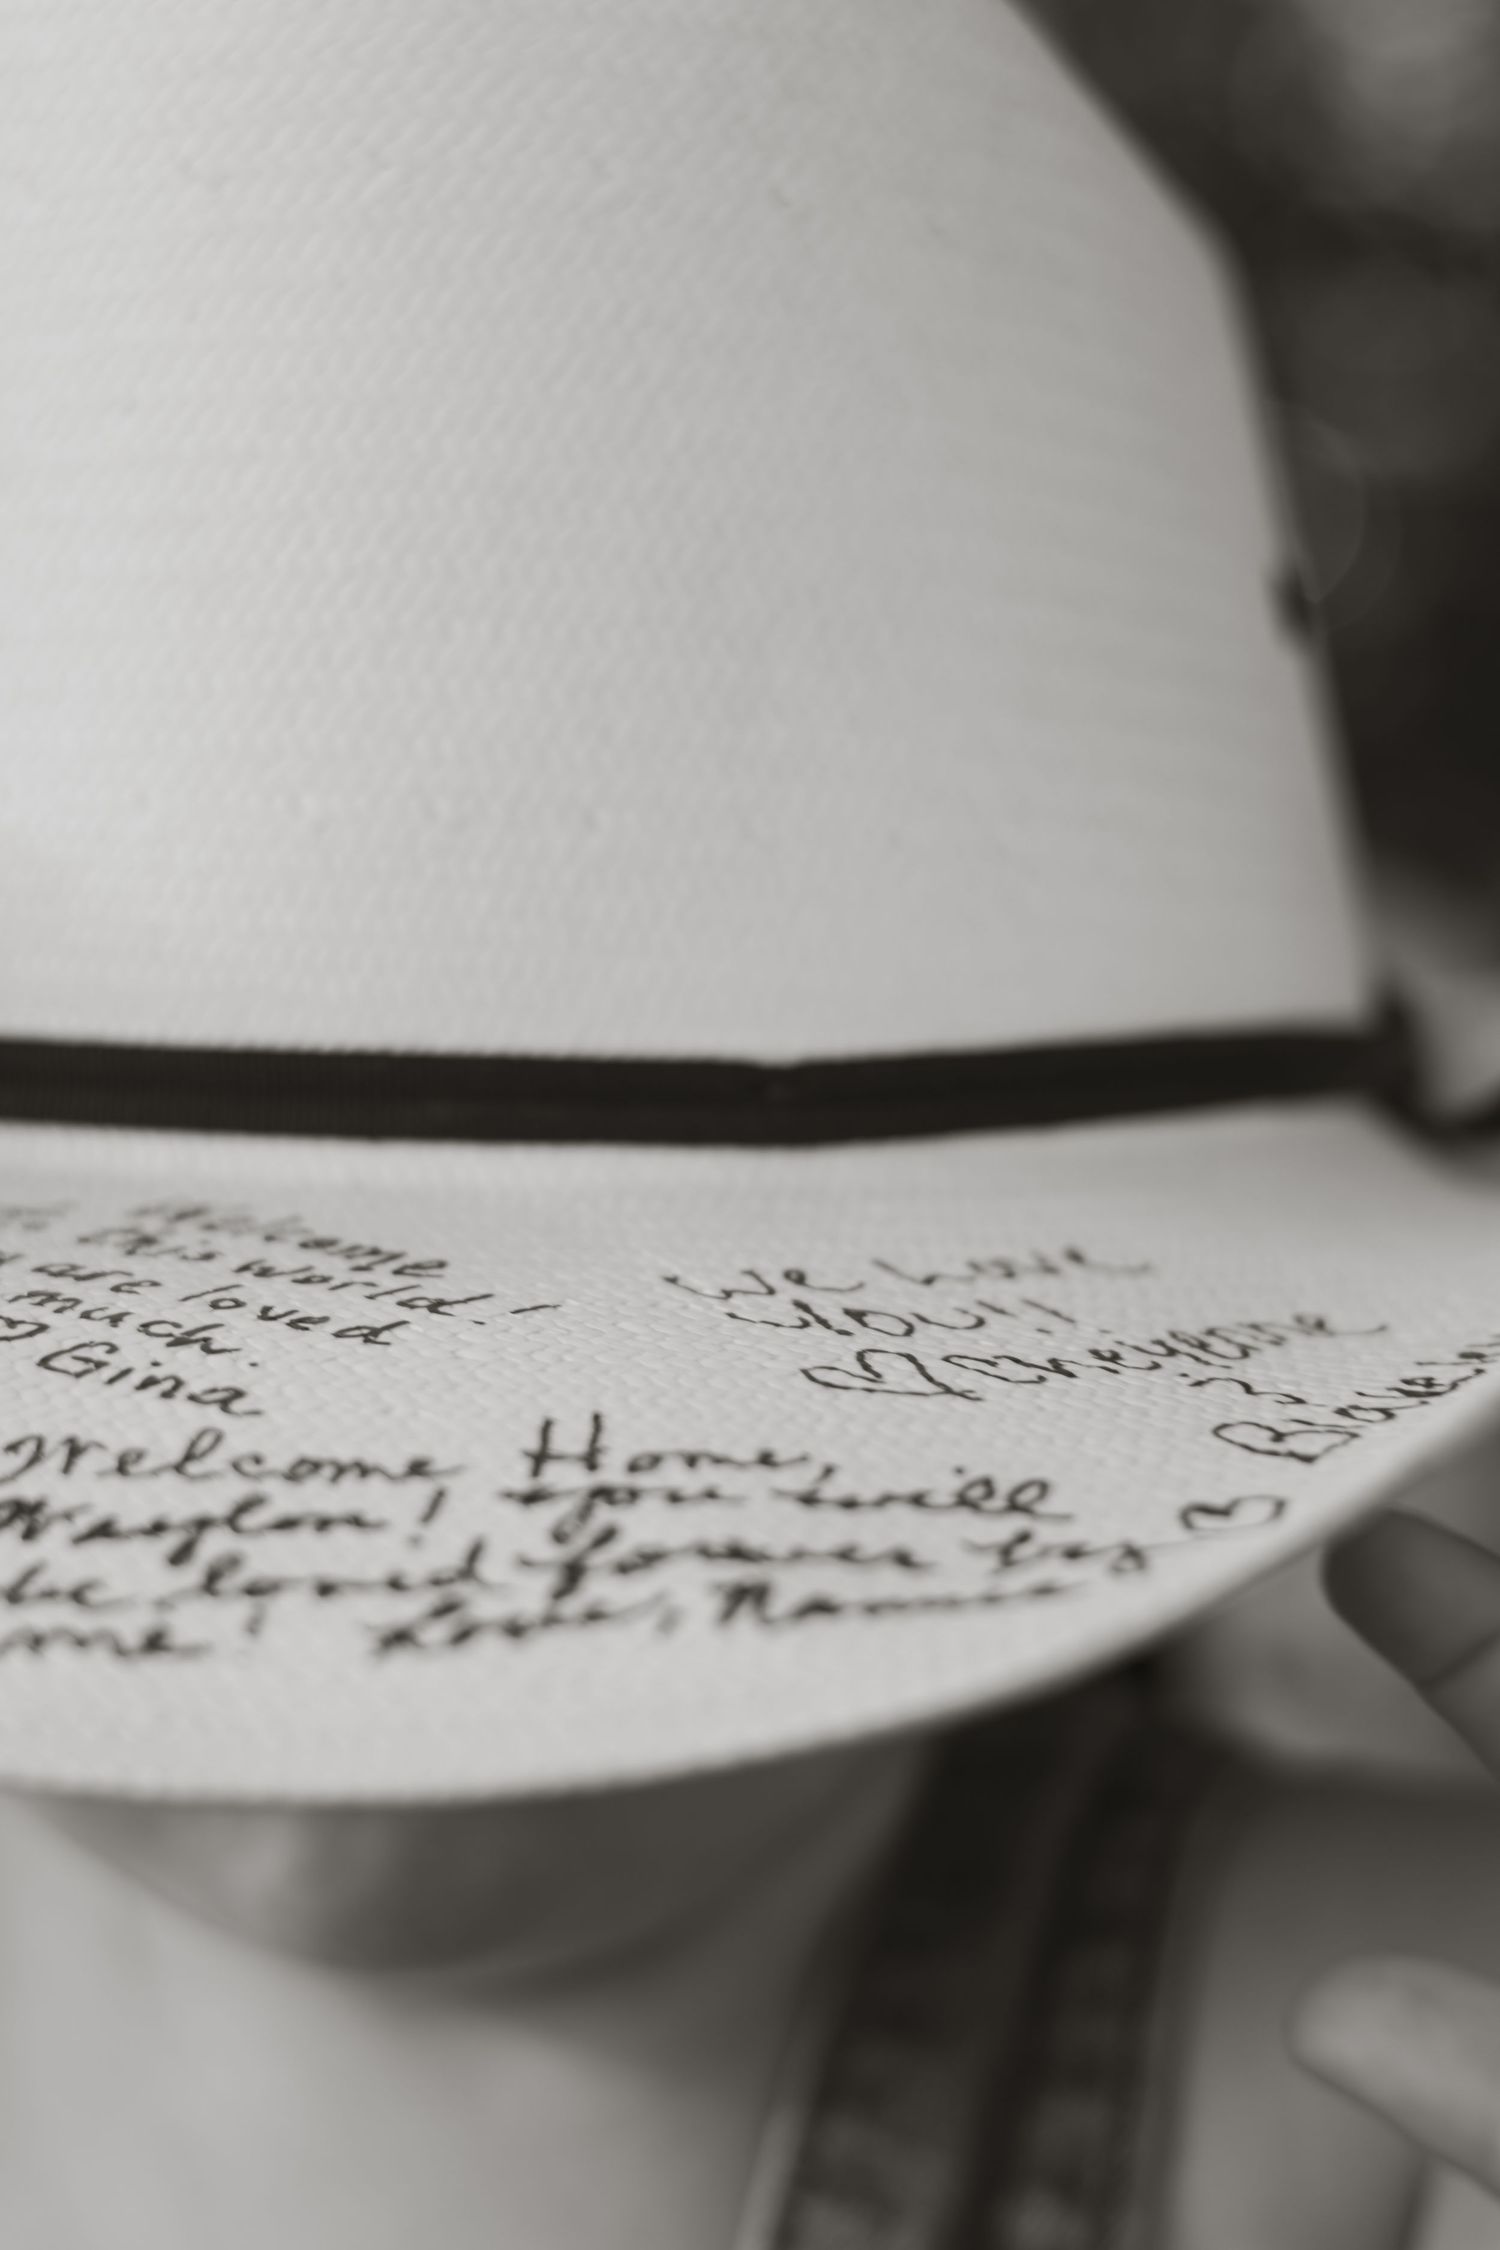 Welcome
this world!
are loved
much.
♡ Gina
We love
you!!
♡ Cheyenne
&
Welcome Home,
Waylon! You will
be loved forever by
me! Love, Nannie ♡